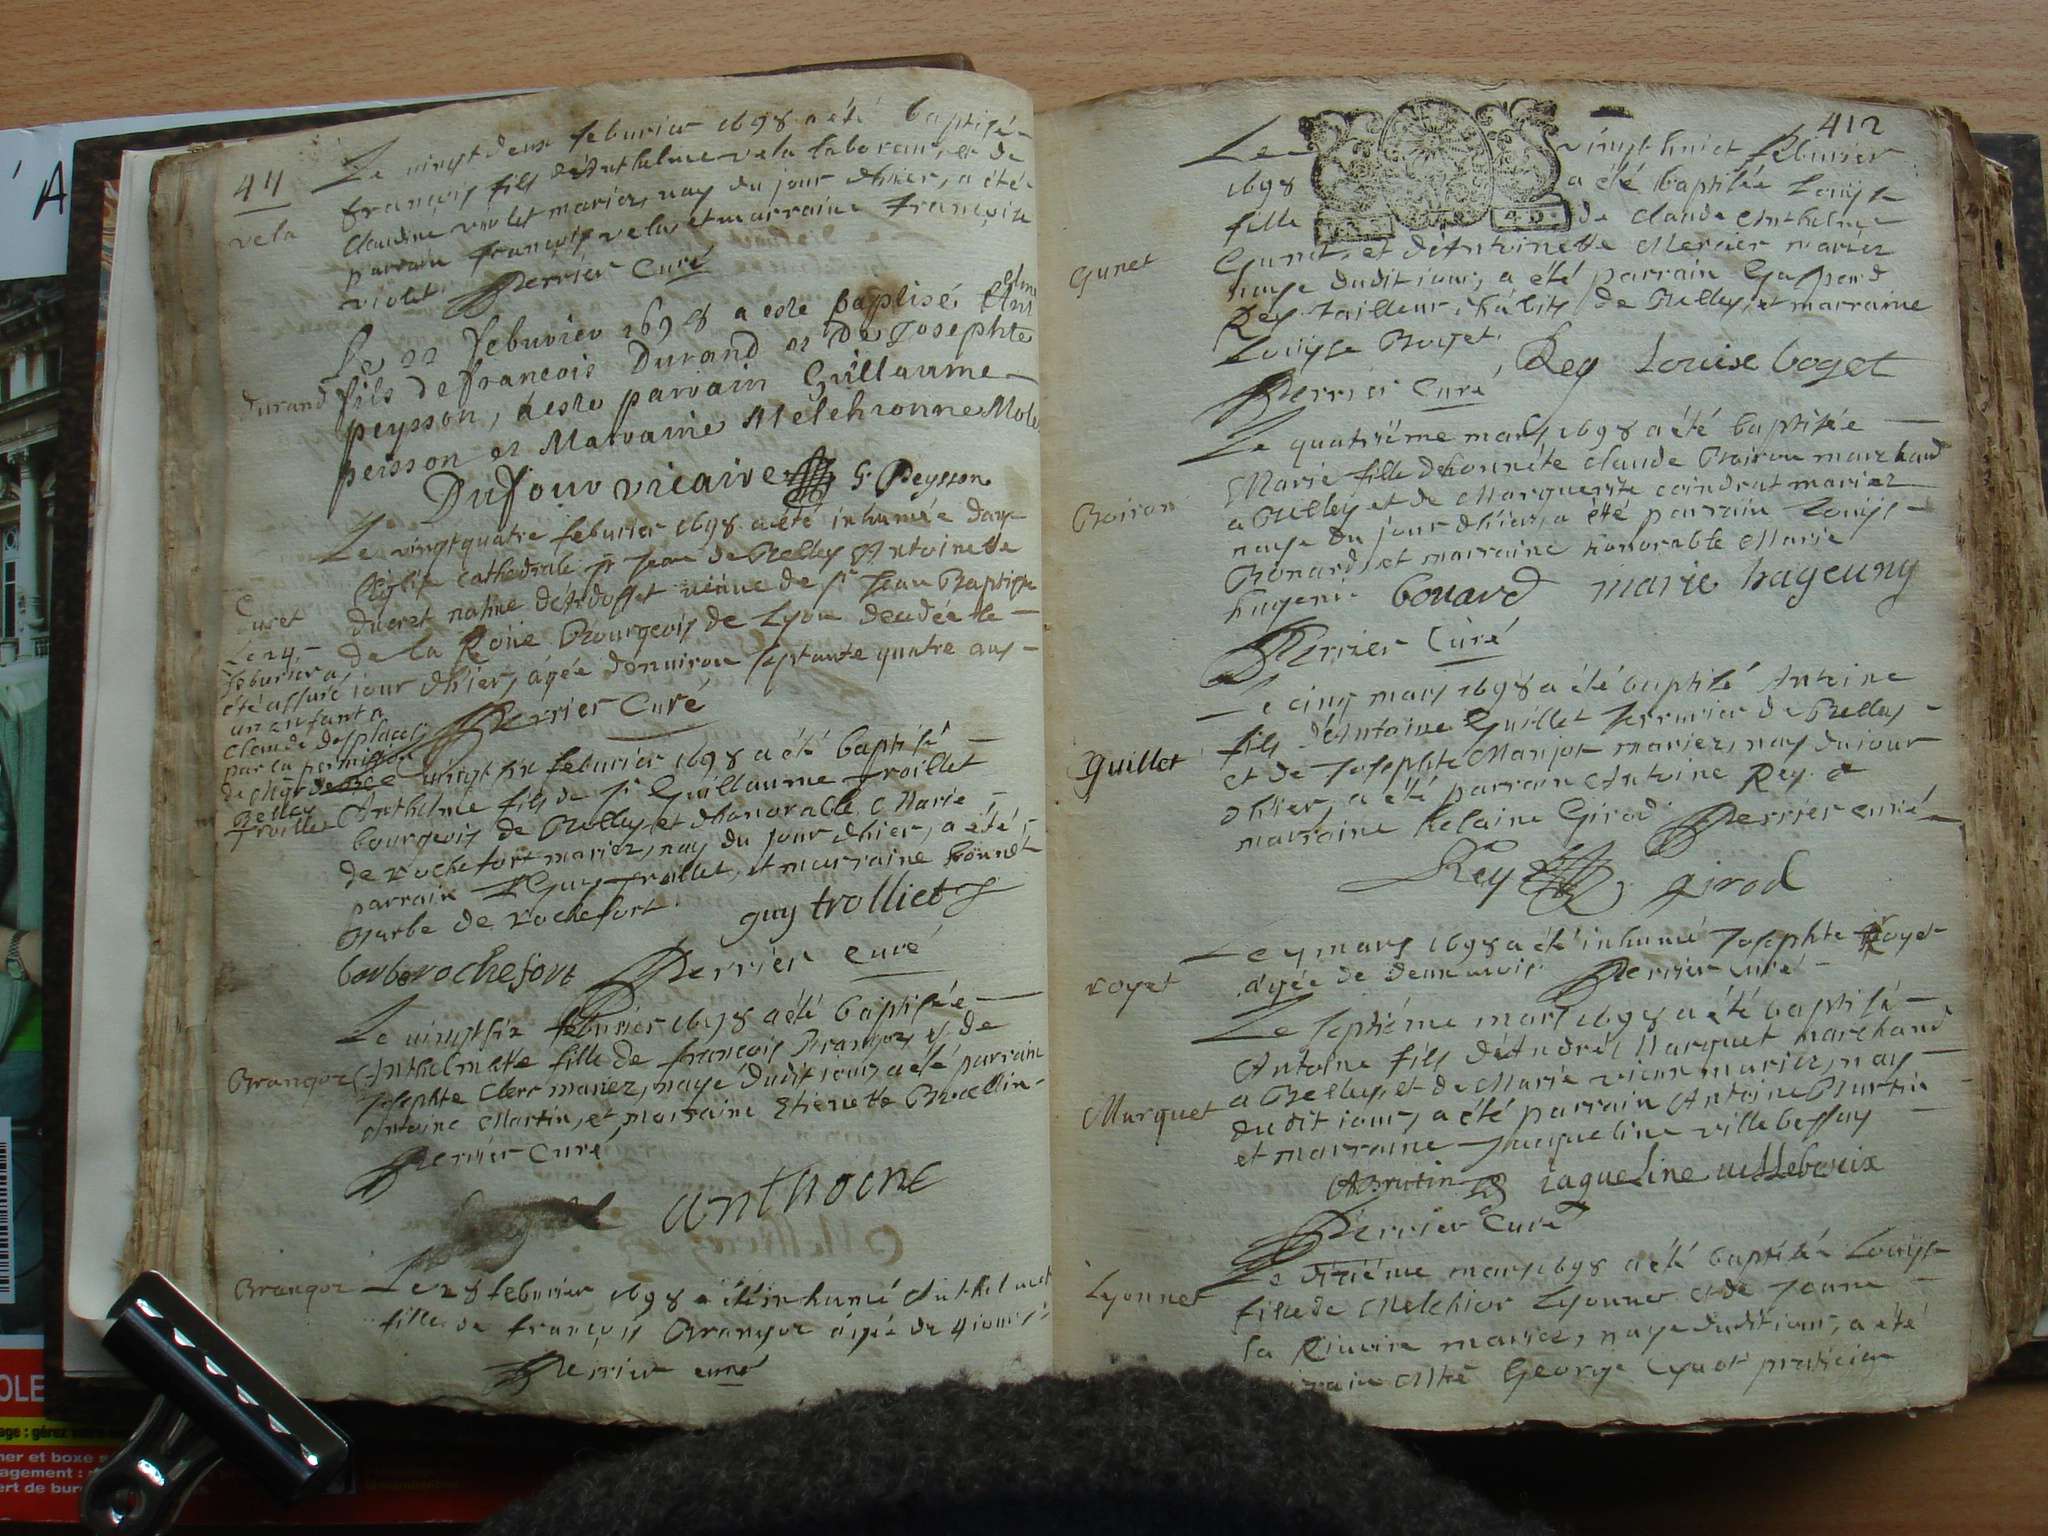 411
vela
Le vingtdeux feburier 1698 a été baptisé
françois fils d'Anthelme vela laboureur, et de
Claudine violet mariez, nay du jour d'hier, a été
parrain françois vela, et marraine françoise
violet. Perrier Curé
durand
Le 22 feburier 1698 a este baptisé
fils de francois Durand et de Josephte
peysson, a este parrain Guillaume
peisson et Maraine Melchionne
Dufour vicaire G. Peysson
Le vingtquatre feburier 1698 a été inhumée dans
l'église cathedrale St Jean de Belley Antoinette
Ducret
ducret natiue d'Ardosset veuue de Sr Jean Baptiste
de la Roüe Bourgeois de Lyon decedée le
jour d'hier, agée d'enuiron septante quatre ans
Perrier Curé
Le 24
feburier a
été assuré
un enfant a
Claude desplaces
par la permission
de Mgr de
Belley
Trolliet
Le vingt six feburier 1698 a été baptisé
Anthelme fils de Sr Guillaume Trolliet
bourgeois de Belley, et d'honorable Marie
de rochefort mariez, nay du jour d'hier, a été
parrain Sr Guy Trolliet, et marraine honnete
Barbe de rochefort guy trolliet
barbe rochefort Perrier curé
Brangoz
Le vingtsix feburier 1698 a été baptisée
Anthelmette fille de françois Brangoz et de
Josephte Clerc mariez, naye dudit jour, a été parrain
Antoine Martin, et marraine Etienette
Perrier Curé
anthoene
Brangoz
Le 28 feburier 1698 a été inhumé Anthelmette
fille de françois Brangoz agée de 4 jours
Perrier curé
412
Le vingt huict feburier
1698 a été baptisée Louyse
fille de Claude Anthelme
Gunet
Gunet, et d'Antoinette Mercier mariez
naye dudit jour, a été parrain Gaspard
Rey tailleur d'habits de Belley, et marraine
Louyse Boget. Rey Louise boget
Perrier Curé
Le quatriéme mars 1698 a été baptisée
Marie fille d'honnéte Claude Boiron marchand
Boiron
a Belley et de Marguerite coindrat mariez
naye du jour d'hier, a été parrain Louys
Bonard, et marraine honorable Marie
hugeni bonard marie hageuny
Perrier Curé
Le cinq mars 1698 a été baptisé Antoine
fils d'Antoine Guillet serrurier de Belley
Guillet
et de Josephte Manjot mariez, nay du jour
d'hier, a été parrain Antoine Rey et
marraine helaine Girod. Perrier curé
Rey girod
Le 7 mars 1698 a été inhumé Josephte Royet
royet
agée de deux mois. Perrier curé
Le septiéme mars 1698 a été baptisé
Antoine fils d'André Marquet marchand
a Belley, et de Marie vieux mariez, nay
Marquet
dudit jour, a été parrain Antoine Burtin
et marraine Jacqueline villebessoys
ABrutin iaqueline
Perrier Curé
Le dixiéme mars 1698 a été baptisée Louyse
Lyonnet
fille de Melchior Lyonnet et de Jeanne
la Riuoire mariez, naye dudit jour, a été
parrain Mtre George praticien